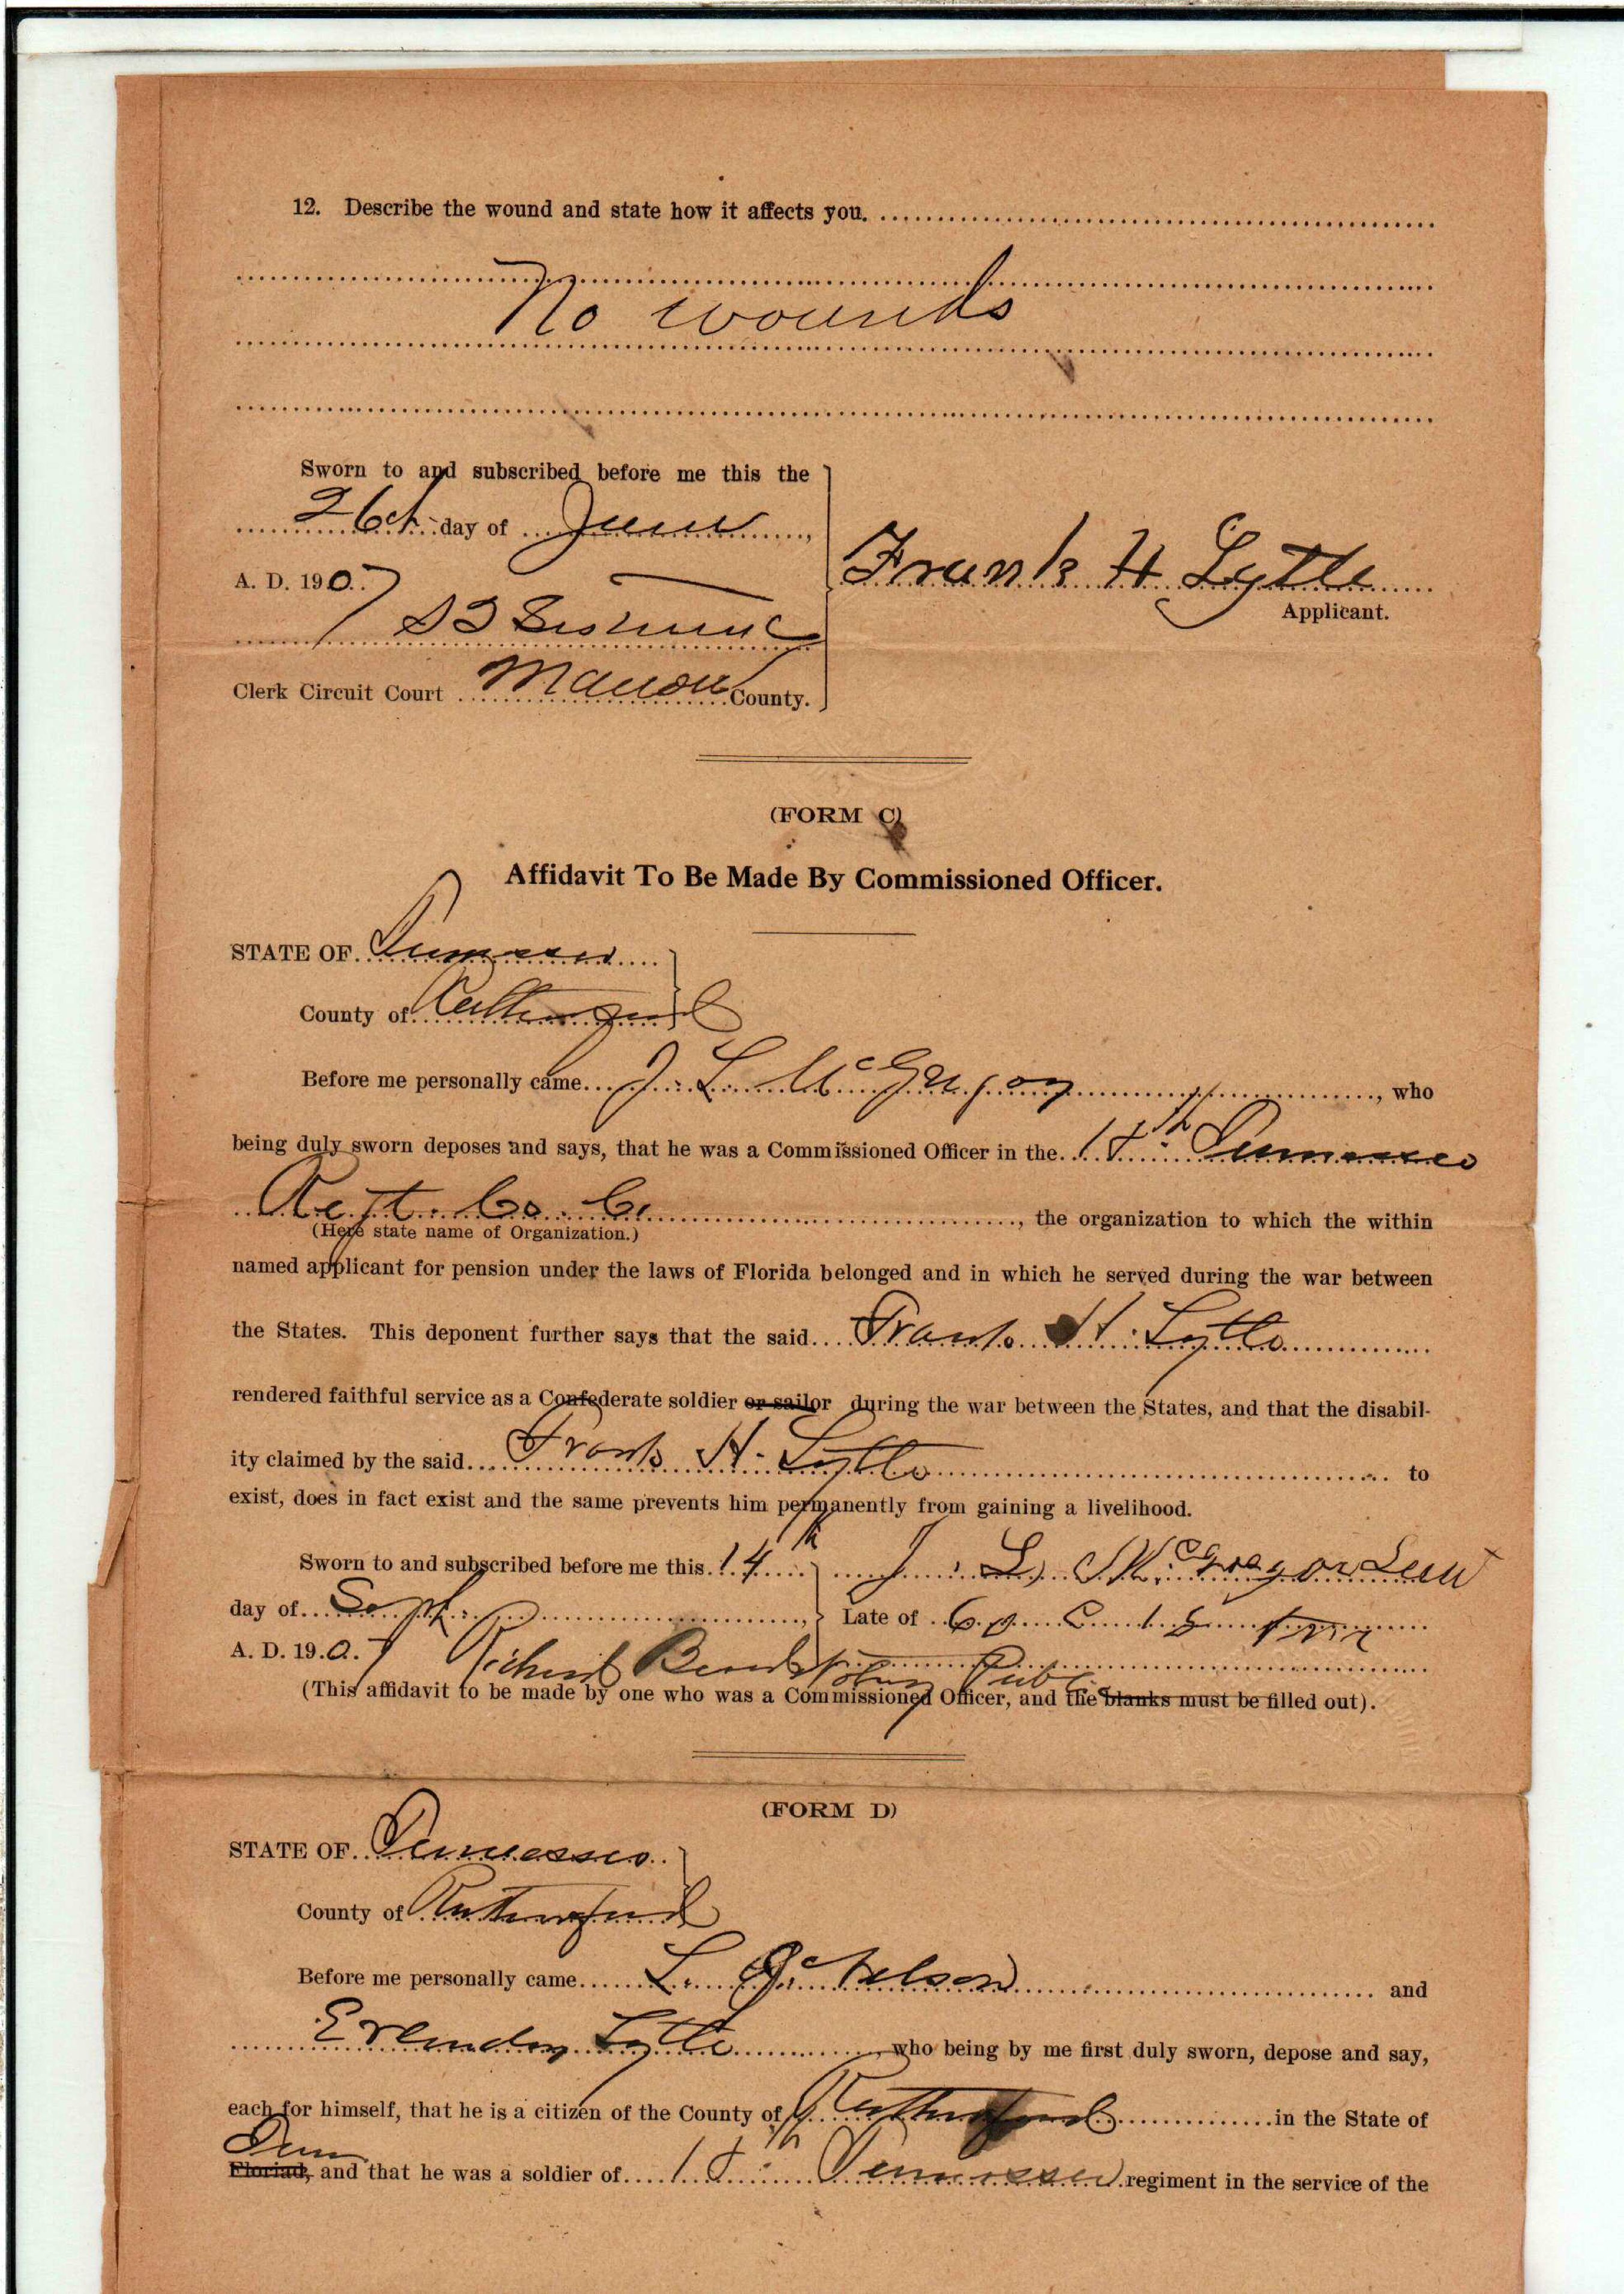 12. Describe the wound and state how it affects you.
No wounds
Sworn to and subscribed before me this the
26th day of June,
A. D. 1907
Clerk Circuit Court Marion County.
Frank H Lytle
Applicant.
(FORM C)
Affidavit To Be Made By Commissioned Officer.
STATE OF Tennessee
County of Rutherford
Before me personally came J. L. McGregor, who
being duly sworn deposes and says, that he was a Commissioned Officer in the Tennessee
Regt. Co. C., the organization to which the within
(Here state name of Organization.)
named applicant for pension under the laws of Florida belonged and in which he served during the war between
the States. This deponent further says that the said Frank H. Lytle
rendered faithful service as a Confederate soldier or sailor during the war between the States, and that the disabil-
ity claimed by the said Frank H. Lytle to
exist, does in fact exist and the same prevents him permanently from gaining a livelihood.
Sworn to and subscribed before me this 14th J. L. McGregor Lieut
day of Sept., Late of Co C
A. D. 1907 Richard
(This affidavit to be made by one who was a Commissioned Officer, and the blanks must be filled out).
(FORM D)
STATE OF Tennessee
County of Rutherford
Before me personally came L. Nelson and
Lytle, who being by me first duly sworn, depose and say,
each for himself, that he is a citizen of the County of Rutherford in the State of
Tenn
Floriad, and that he was a soldier of Tennessee regiment in the service of the